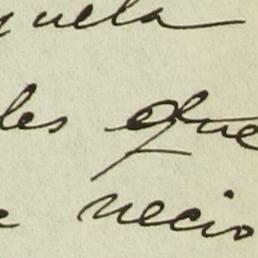 quela
les que
necio